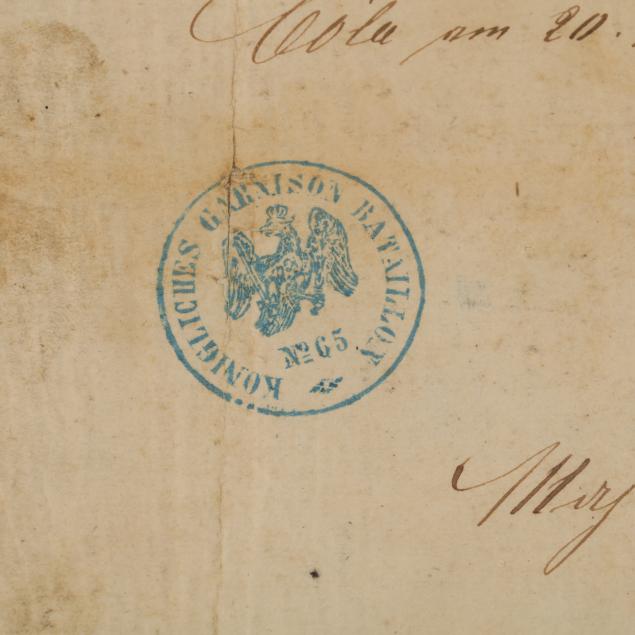 Cöln am 20.
KÖNIGLICHES GARNISON BATAILLON
No 65